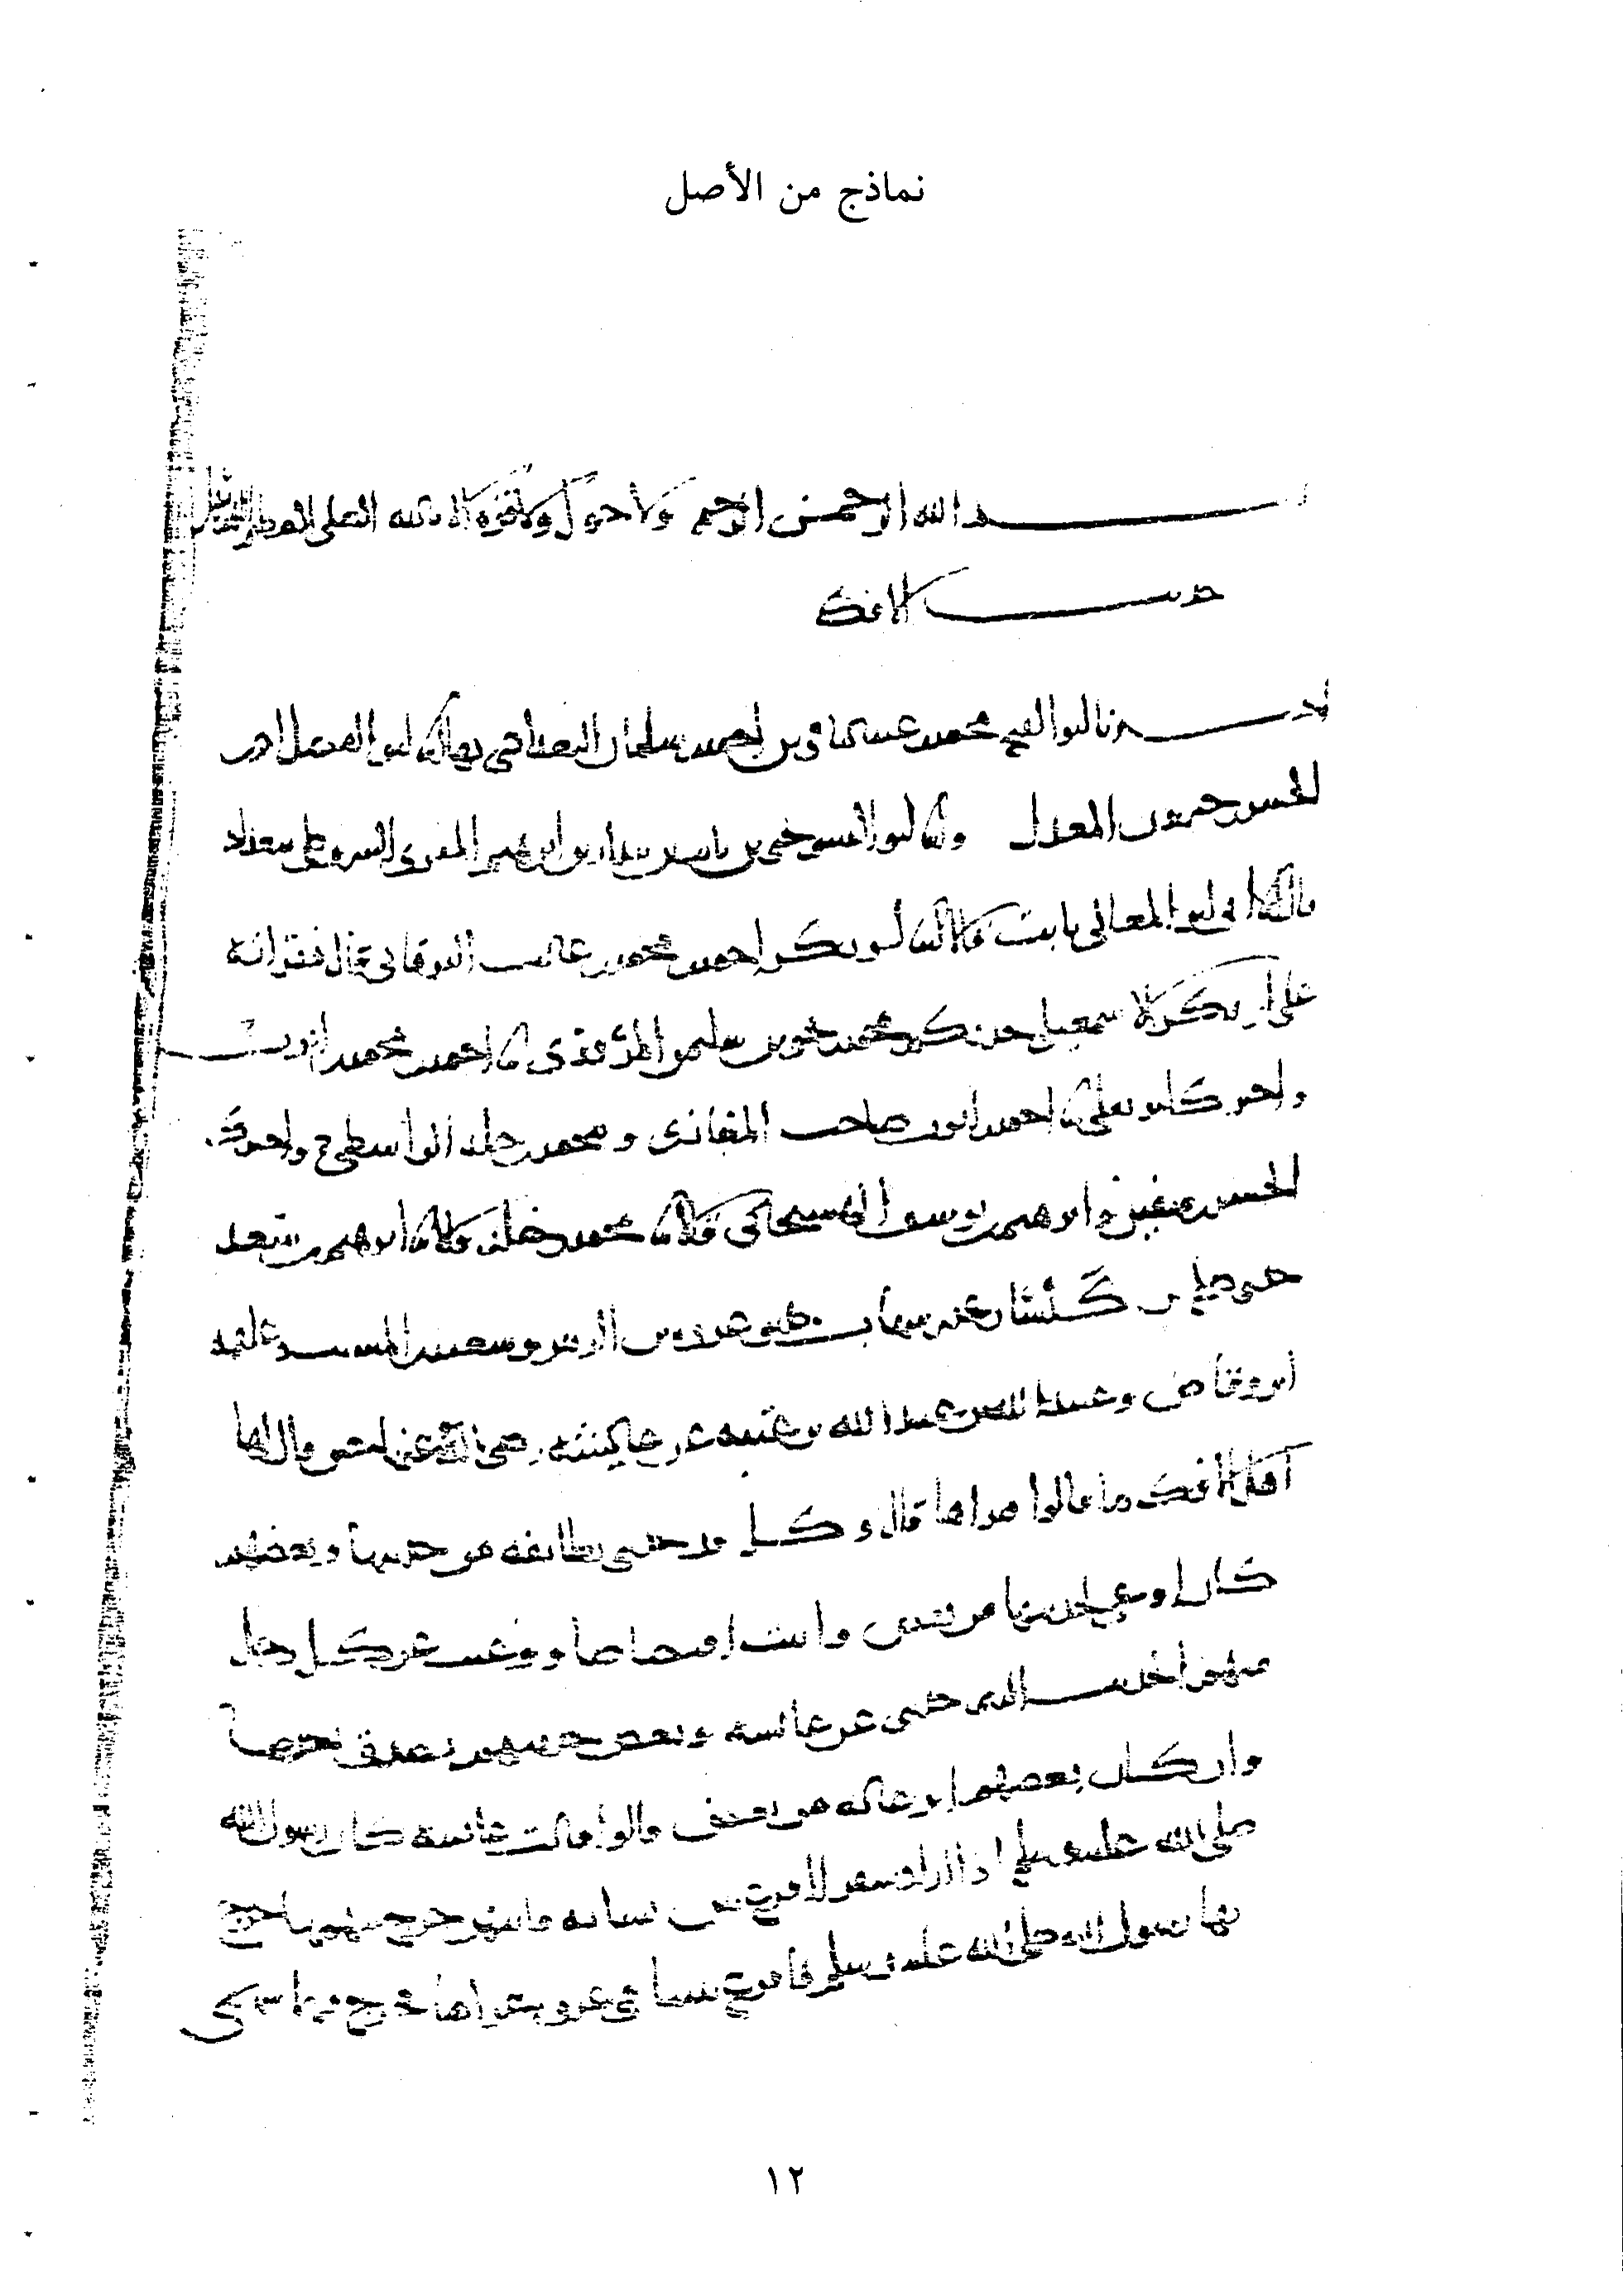 نماذج من الأصل
بسم الله الرحمن الرحيم ولا حول ولا قوة الا بالله العلي العظيم
حديث الافك
اخبرنا ابو الفتح محمد بن عبد الباقي بن احمد بن سلمان البغدادي بها انا ابو الفضل احمد بن
الحسن بن خيرون المعدل وانا ابو الحسن بن بندار بن ابرهيم المقرئ ببغداد
قالا انا ابو المعالي ثابت قالا انا ابو بكر احمد بن محمد بن غالب البرقاني قال قراته
على ابي بكر الاسمعيلي حدثكم محمد بن يحيى بن سليمن المروزي نا احمد بن محمد بن ايوب
واخبركم ابو يعلى نا احمد بن ايوب صاحب المغازي ومحمد بن خلد الواسطي ح واخبرك
الحسن بن سفين وابرهيم بن يوسف الهسنجاني قالا نا محمد بن خلد قالا نا ابرهيم بن سعد
عن صالح بن كيسان عن بن شهاب عن عروه بن الزبير وسعيد بن المسيب وعلقمه
ابن وقاص وعبيد الله بن عبد الله بن عتبه عن عائشه رضي الله عنها حين قال لها
اهل الافك ما قالوا فبراها قال وكل قد حدثني بطائفه من حديثها وبعضهم
كان اوعى لحديثها من بعض واثبت اقتصاصا ووعيت عن كل رجل
منهم الحديث الذي حدثني عن عائشه وبعض حديثهم يصدق بعضا
وان كان بعضهم اوعى له من بعض قالوا قالت عائشه كان رسول الله
صلى الله عليه وسلم اذا اراد سفرا اقرع بين نسائه وايتهن خرج سهمها خرج
بها رسول الله صلى الله عليه وسلم فاقرع بيننا في غزوه غزاها فخرج فيها سهمي
١٢